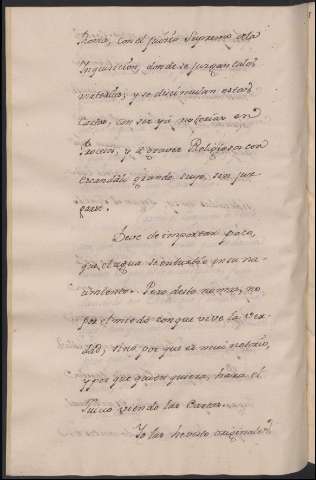 Roma, con el Juicio Supremo de la
Inquisicion, donde se juzgan tales
materias; y se disimulan estas
Cartas, con ser ya notorias en
Francia, y a graves Religiosos con
escandalo grande suyo, sin jun
tarse.
Deve de importar poco,
que el agua se enturbie en su na-
cimiento. Pero desto nunca, no
por el miedo con que vive la Ver-
dad; sino por que es mui notorio,
y por que quien quiera, hara el
Juicio viendo las Cartas.
Yo las he visto originales